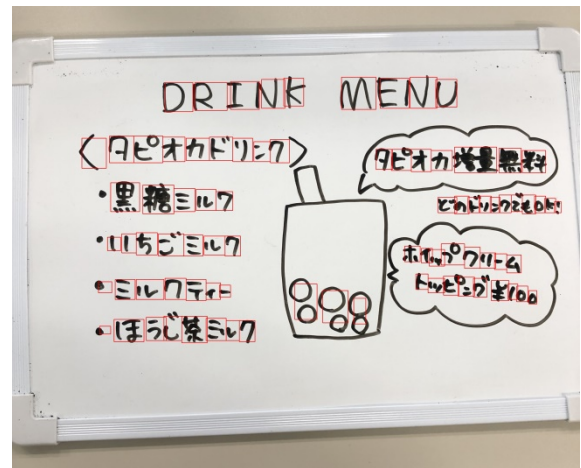 DRINK MENU
〈タピオカドリンク〉
・黒糖ミルク
・いちごミルク
・ミルクティー
・ほうじ茶ミルク
タピオカ増量無料
どのドリンクでもOK!
ホイップクリーム
トッピング¥100